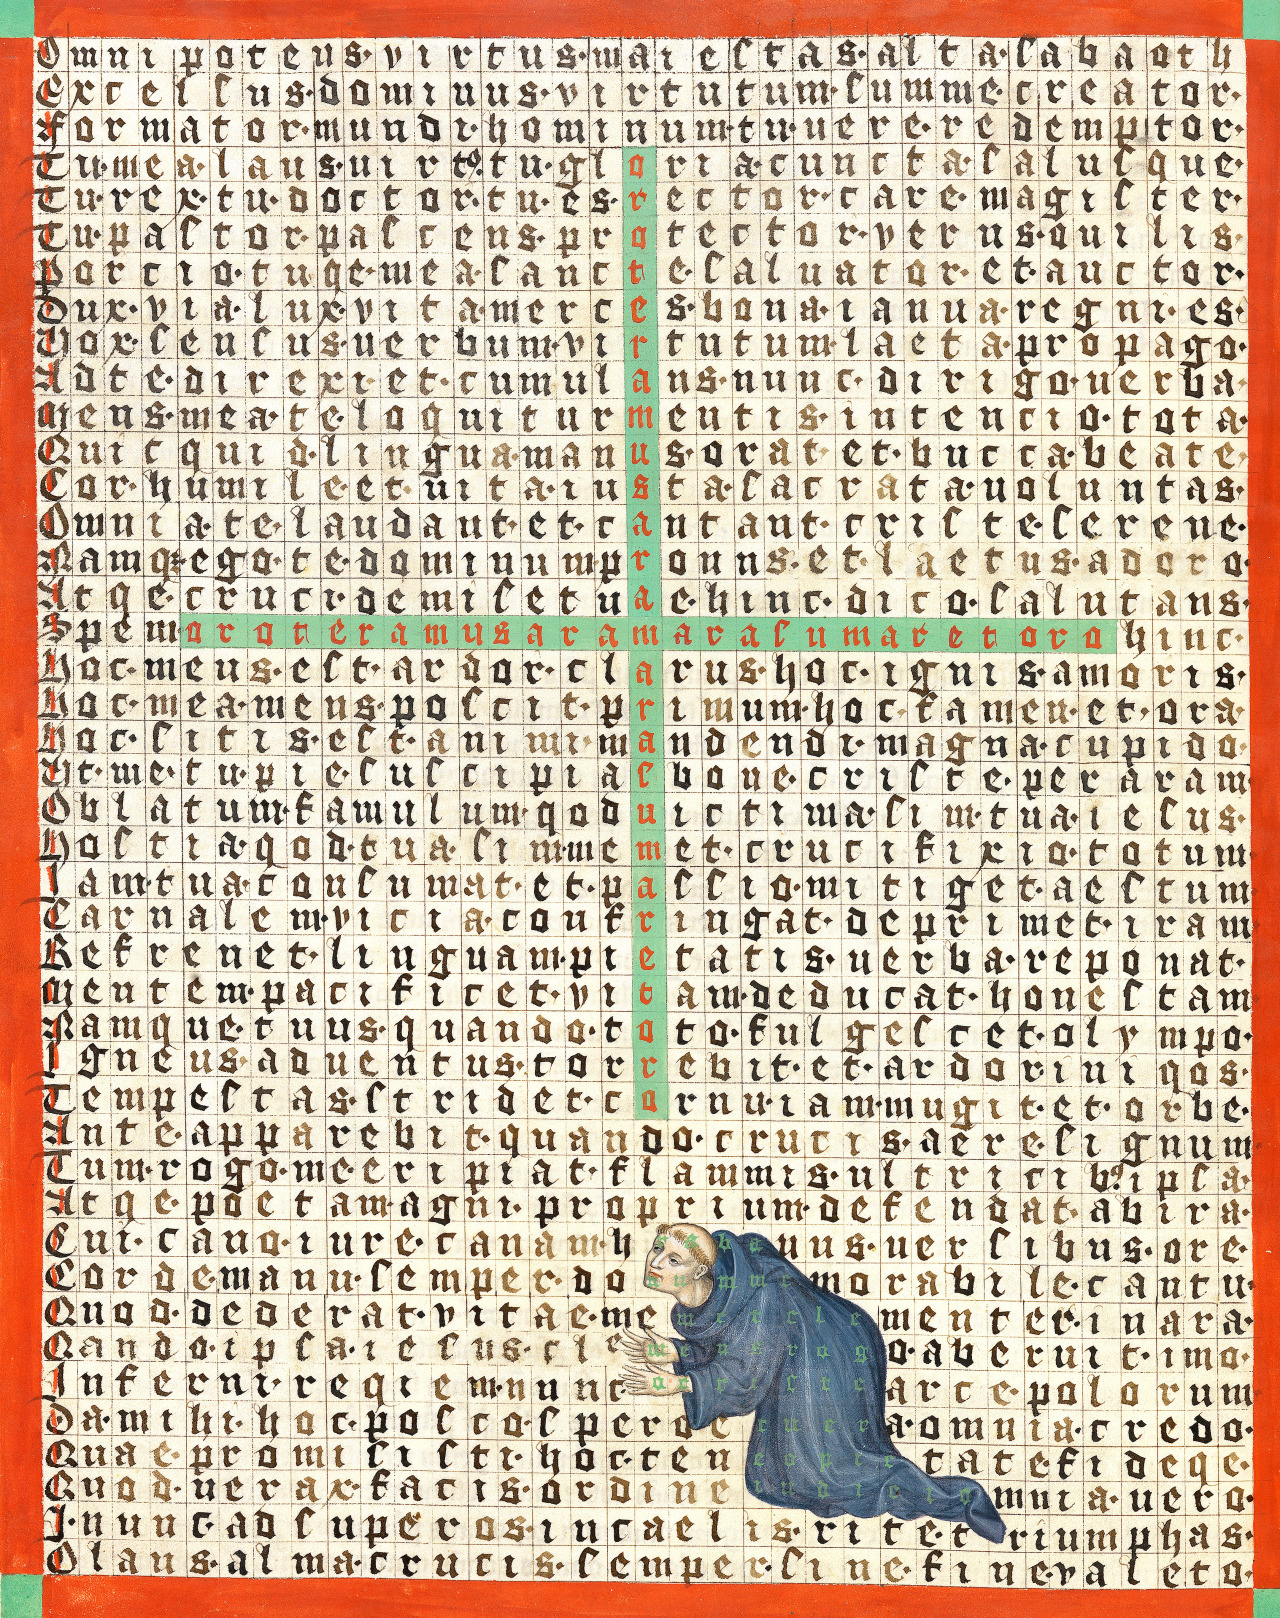 Omnipotens·virtus·maiestas·alta·sabaoth
Excelsus·dominus·virtutum·summe·creator·
Formator·mundi·hominum·tu·uere·redemptor·
Tu·mea·laus·uirtꝰ·tu·gloria·cuncta·salusque·
Tu·rex·tu·doctor·tu·es·rector·care·magister·
Tu·pastor·pascens·protector·verus·ouilis·
Portio·tuqe·mea·sancte·saluator·et·auctor·
Dux·via·lux·vita·merces·bona·ianua·regni·es·
Vox·sensus·uerbum·virtutum·laeta·propago·
Ad te·direxi·et·cumulans·nunc·dirigo·uerba·
Mens·mea·te·loquitur mentis·intencio·tota·
Quitquid·lingua·manus·orat·et·bucca·beate·
Cor·humile·et·uita·iusta·sacrata·uoluntas·
Omnia·te·laudant·et·cantant·criste·serene·
Namqꝫ·ego·te·dominum·pronus·et·laetus·adoro·
Atqe·cruci·demisse tuae·hinc·dico·salutans·
Spem·oro te ramus aram ara sumar et oro hinc·
Hoc·meus·est·ardor·clarus·hoc·ignis·amoris·
Hoc·mea·mens·poscit·primum·hoc·famen·et·ora·
Hoc·sitis·est·animi·mandendi·magna·cupido·
Vt·me·tu·pie·suscipias bone·criste·per aram
Oblatum·famulum·qod uictima·sim·tua·iesus·
Hostia·qod·tua·sim·memet·crucifixio·totum·
Iam·tua·consumat·et·passio·mitiget·aestum
Carnalem·vitia·confringat·deprimet·iram
Refrenet·linguam·pietatis·uerba·reponat·
Mentem·pacificet·vitam·deducat·honestam
Namque·tuus·quando·toto·fulgescet·olympo·
Igneus·aduentus·torrebit·et·ardor iniqos·
Tempestas·stridet·cornu·iam·mugit·et·orbe·
Ante·apparebit·quando·crucis·aere·signum
Tum·rogo·me eripiat·flammis·ultricibꝰ·ipsa·
Atqe·poetam·agni·proprium·defendat·ab ira·
Cui·cano·iure·canam·hrabanus·uersibus·ore·
Corde·manu·semper·donum memorabile·cantu·
Quod·dederat·vitae·me
Qando·ipsa·iesus·cle mens rogo·ab eruit·imo·
Inferni·reqiem·nunc o criste arce·polorum
Da·mihi·hoc·posco·spero et uera·omnia·credo·
Quae·promisisti·hoc·teneo pietate·fideqe·
Quod·uerax·facis·ordine iudicio omnia·uero·
I·nunc·ad superos·in caelis·rite·triumphas·
O laus·alma·crucis·semper·sine·fine·valeto·